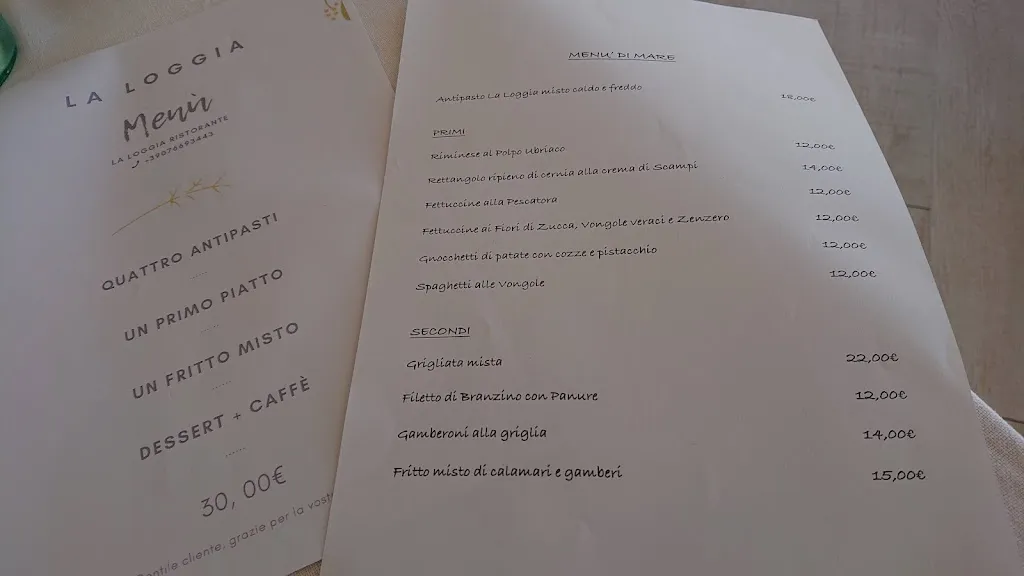 LA LOGGIA
Menù
LA LOGGIA RISTORANTE
+39076693443
QUATTRO ANTIPASTI
.....
UN PRIMO PIATTO
.....
UN FRITTO MISTO
......
DESSERT + CAFFÈ
......
30, 00€
Gentile cliente, grazie per la
MENU' DI MARE
Antipasto La Loggia misto caldo e freddo 18,00€
PRIMI
Riminese al Polpo Ubriaco 12,00€
Rettangolo ripieno di cernia alla crema di Scampi 14,00€
Fettuccine alla Pescatora 12,00€
Fettuccine ai Fiori di Zucca, Vongole veraci e Zenzero 12,00€
Gnocchetti di patate con cozze e pistacchio 12,00€
Spaghetti alle Vongole 12,00€
SECONDI
Grigliata mista 22,00€
Filetto di Branzino con Panure 12,00€
Gamberoni alla griglia 14,00€
Fritto misto di calamari e gamberi 15,00€